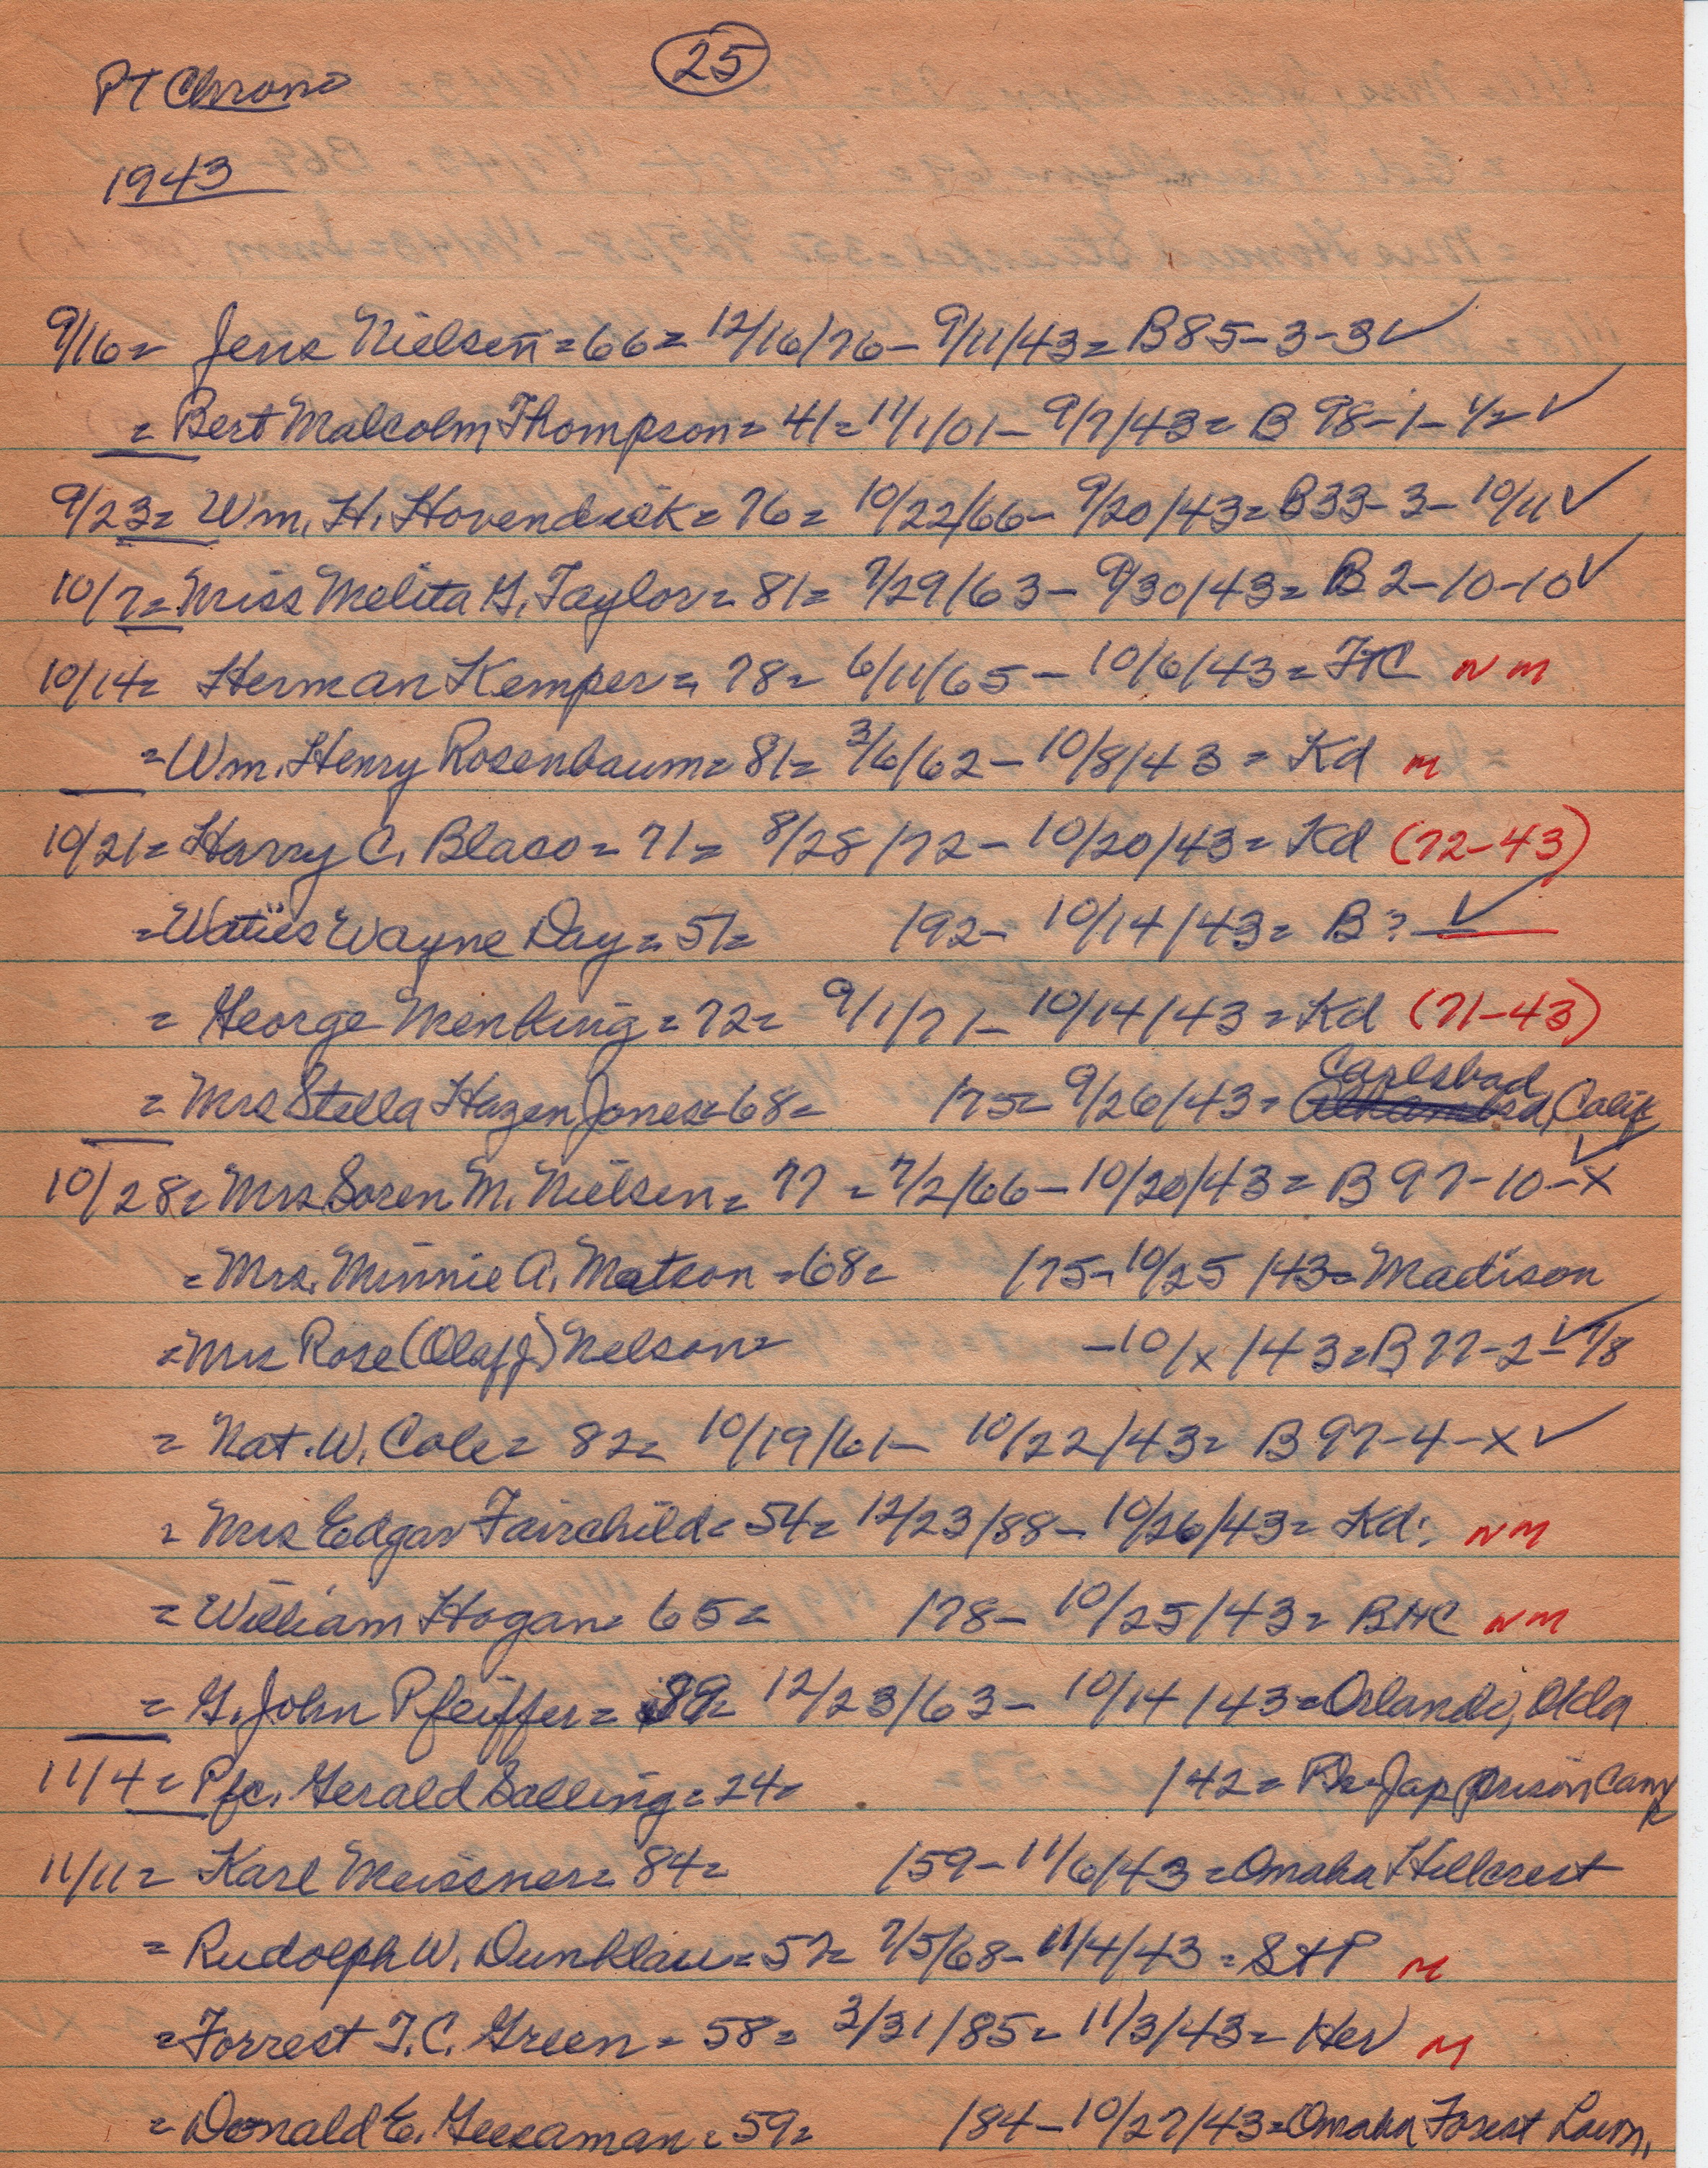 25
PT Chrono
1943
9/16= Jens Nielsen=66= 12/16/76- 9/11/43= B85-3-3✓
= Bert Malcolm Thompson= 41= 11/1/01- 9/7/43= B 98-1-1/2 ✓
9/23= Wm. H. Hovendick= 76= 10/22/66- 9/20/43= B33-3-10/11 ✓
10/7= Miss Melita G. Taylor= 81= 7/29/63- 9/30/43= B 2-10-10✓
10/14= Herman Kemper= 78= 6/11/65- 10/6/43= FtC NM
=Wm. Henry Rosenbaum= 81= 3/6/62- 10/8/43= Kd M
10/21= Harry C. Blaco= 71= 8/28/72- 10/20/43= Kd (72-43)
= Wayne Day= 51= /92- 10/14/43= B? ✓
= George Menking= 72= 9/1/71- 10/14/43= Kd (71-43)
= Mrs Stella Hazen Jones=68= /75- 9/26/43= Carlsbad, Calif
10/28= Mrs Soren M. Nielsen= 77= 7/2/66- 10/20/43= B 97-10-X ✓
= Mrs. Minnie A. Matson=68= /75- 10/25/43= Madison
=Mrs Rose (Olaf J) Nelson= -10/x/43= B 77-2-7/8 ✓
= Nat. W. Cole= 82= 10/19/61- 10/22/43= B 97-4-X ✓
= Mrs Edgar Fairchild= 54= 12/23/88- 10/26/43= Kd: NM
= William Hogan= 65= /78- 10/25/43= BHC NM
= G. John Pfeiffer= 12/23/63- 10/14/43= Orlando, Okla
11/4= Pfc. Gerald Salling= 24= /42= Jap prison Camp
11/11= Karl Meissner= 84= /59- 11/6/43= Omaha Hillcrest
= Rudolph W. Dunklau= 57= 7/5/68- 11/4/43= StP M
=Forrest T.C. Green= 58= 3/31/85- 11/3/43= Her M
= Donald E. Geesaman= 59= /84- 10/27/43= Omaha Forest Lawn.